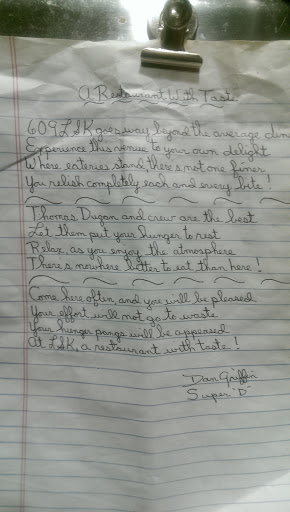 A Restaurant With Taste
609 LSK goes way beyond the average
Experience this venue to your own delight
Where enterees stand, there's not one finer
You relish completely each and every bite!
Thomas Dugan and crew are the best
Let them put your hunger to rest
Relax, as you enjoy the atmosphere
There's nowhere better to eat than here!
Come here often, and you will be pleased
Your effort will not go to waste
Your hunger pangs will be appeased
At LSK, a restaurant with taste!
Dan Griffin
Super "D"